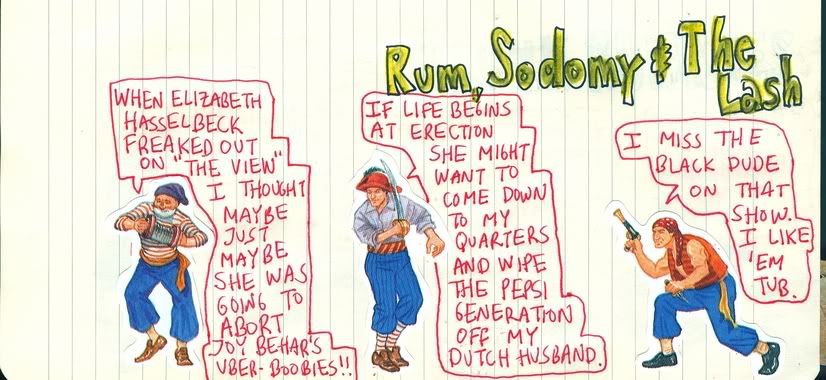 Rum, Sodomy & The
Lash
WHEN ELIZABETH
HASSELBECK
FREAKED OUT
ON "THE VIEW"
I THOUGHT
MAYBE
JUST
MAYBE
SHE WAS
GOING TO
ABORT
JOY BEHAR'S
UBER-BOOBIES!!
IF LIFE BEGINS
AT ERECTION
SHE MIGHT
WANT TO
COME DOWN
TO MY
QUARTERS
AND WIPE
THE PEPSI
GENERATION
OFF MY
DUTCH HUSBAND.
I MISS THE
BLACK DUDE
ON THAT
SHOW.
I LIKE
'EM
TUB.